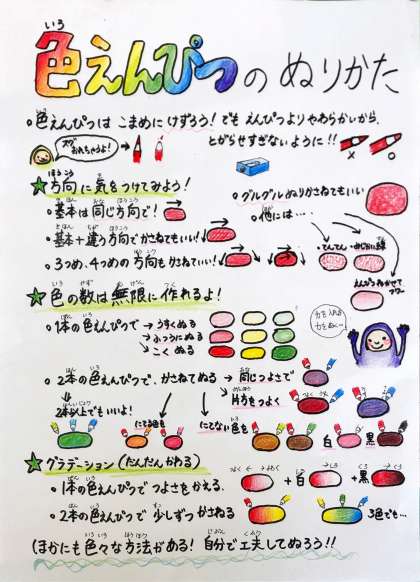 いろ
色えんぴつのぬりかた
。色えんぴつは こまめにけずろう! でも えんぴつよりやわらかいから、
スグおれちゃうよ!
とがらせすぎないように!!
× ○
☆方向に気をつけてみよう!
。基本は同じ方向で!
。グルグルぬりかさねてもいい
。他には…
。基本+違う方向でかさねてもいい!
・てんてん
・みじかい線
。3つめ、4つめの方向もかさねていい!
えんぴつねかせてフワー
☆色の数は無限に作れるよ!
。1本の色えんぴつで → うすくぬる
→ ふつうにぬる
→ こくぬる
力を入れる
力をぬく〜
。2本の色えんぴつで、かさねてぬる → 同じつよさで
片方をつよく
2本以上でもいいよ!
にてる色を
にてない色を
白 黒
☆グラデーション(だんだんかわる)
。1本の色えんぴつでつよさをかえる
つよく ← → よわく
+白 +黒
。2本の色えんぴつで少しずつかさねる
3色でも…
(ほかにも色々な方法がある! 自分で工夫してぬろう!!